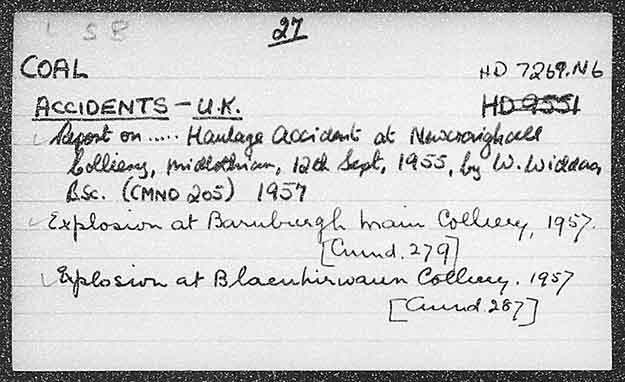 L S B
27
COAL HD 7269.N6
ACCIDENTS - U.K. HD 9551
Report on ..... Haulage Accident at Newcraighall
Colliery, Midlothian, 12th Sept, 1955, by W. Widdas,
B.Sc. (CMND 205) 1957
Explosion at Barnburgh Main Colliery, 1957.
[Cmnd. 279]
Explosion at Blaenhirwaun Colliery. 1957
[Cmnd. 287]